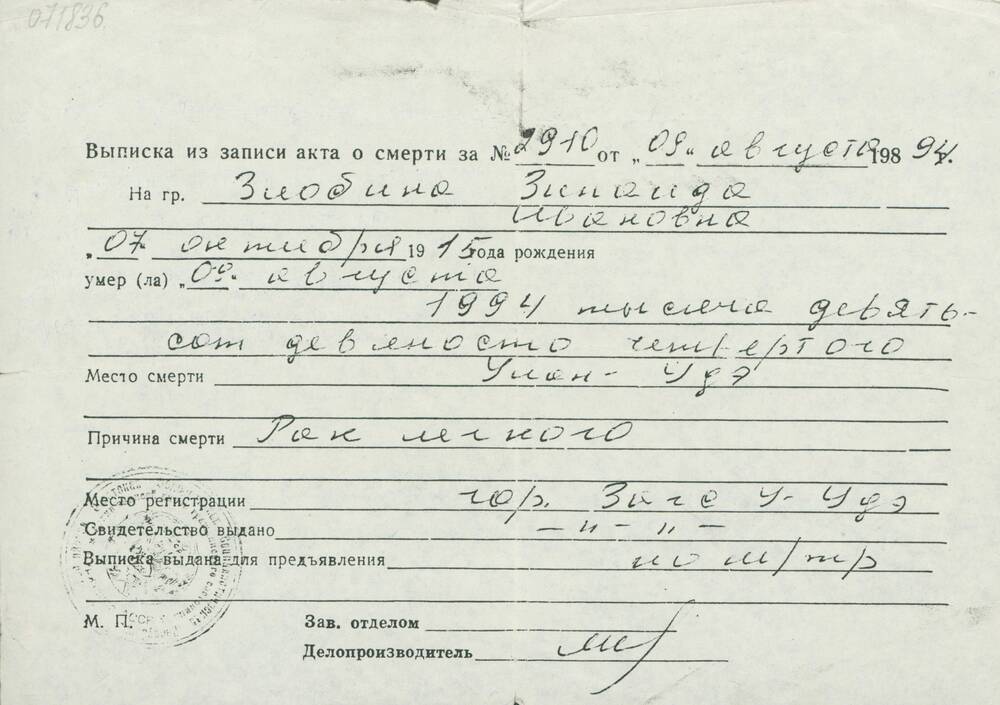 071836
Выписка из записи акта о смерти за № 2910 от „09“ августа 198 94 г.
На гр. Злобина Зинаида
Ивановна
„07“ октября 1915 года рождения
умер (ла) августа
1994 тысяча девять-
сот девяносто четвертого
Место смерти Улан-Удэ
Причина смерти Рак легкого
Место регистрации гор. Загс У-Удэ
Свидетельство выдано – „ – „ –
Выписка выдана для предъявления по м/тр
М. П. Зав. отделом
Делопроизводитель